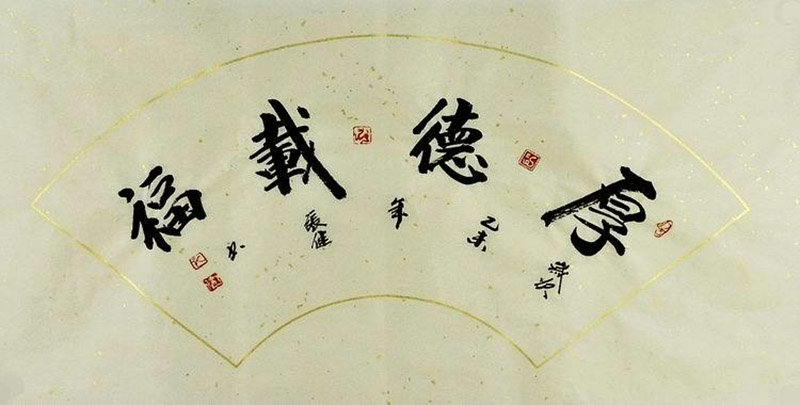 厚德載福
乙未
年
張健
书